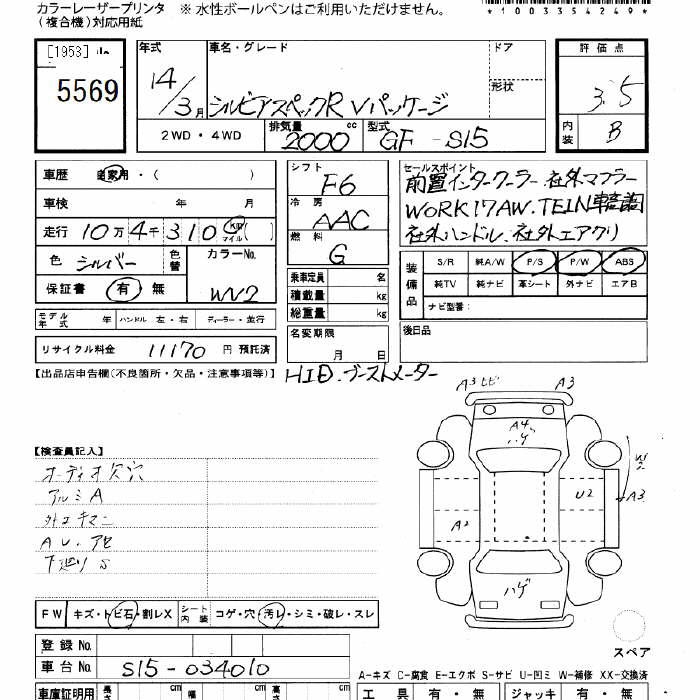 カラーレーザープリンタ ※ 水性ボールペンはご利用いただけません。 *1003354249*
(複合機)対応用紙
[1953]
5569
年式 車名・グレード ドア 評価点
14/3月 シルビアスペックR Vパッケージ 形状 3.5
2WD・4WD 排気量 2000 cc 型式 GF-S15 内装 B
車歴 自家用・( ) シフト F6 セールスポイント
前置インタークーラー.社外マフラー
車検 年 月 冷房 AAC WORK17AW.TEIN車高調
走行 10万4千310 Km マイル 燃料 G 社外ハンドル.社外エアクリ
色 シルバー 色替 カラーNo. WV2
装備品 S/R 純A/W P/S P/W ABS
純TV 純ナビ 革シート 外ナビ エアB
ナビ型番:
保証書 有・無
乗車定員 名
積載量 kg
総重量 kg
モデル年式 年 ハンドル 左・右 ディーラー・並行
名変期限 月 日
後日品
リサイクル料金 11170 円 預託済
【出品店申告欄(不良箇所・欠品・注意事項等)】 HID.ブーストメーター
A3 ヒビ A3
A4 ハゲ
【検査員記入】
オーディオ欠穴
アルミA
AU.アセ
下廻りS
W2
U2 A3
A2
ハゲ
FW キズ・トビ石・割レX シート内装 コゲ・穴・汚レ・シミ・破レ・スレ
登録No.
スペア
車台No. S15-034010
A-キズ C-腐食 E-エクボ S-サビ U-凹ミ W-補修 XX-交換済
車庫証明用 長さ cm 幅 cm 高さ cm 工具 有・無 ジャッキ 有・無